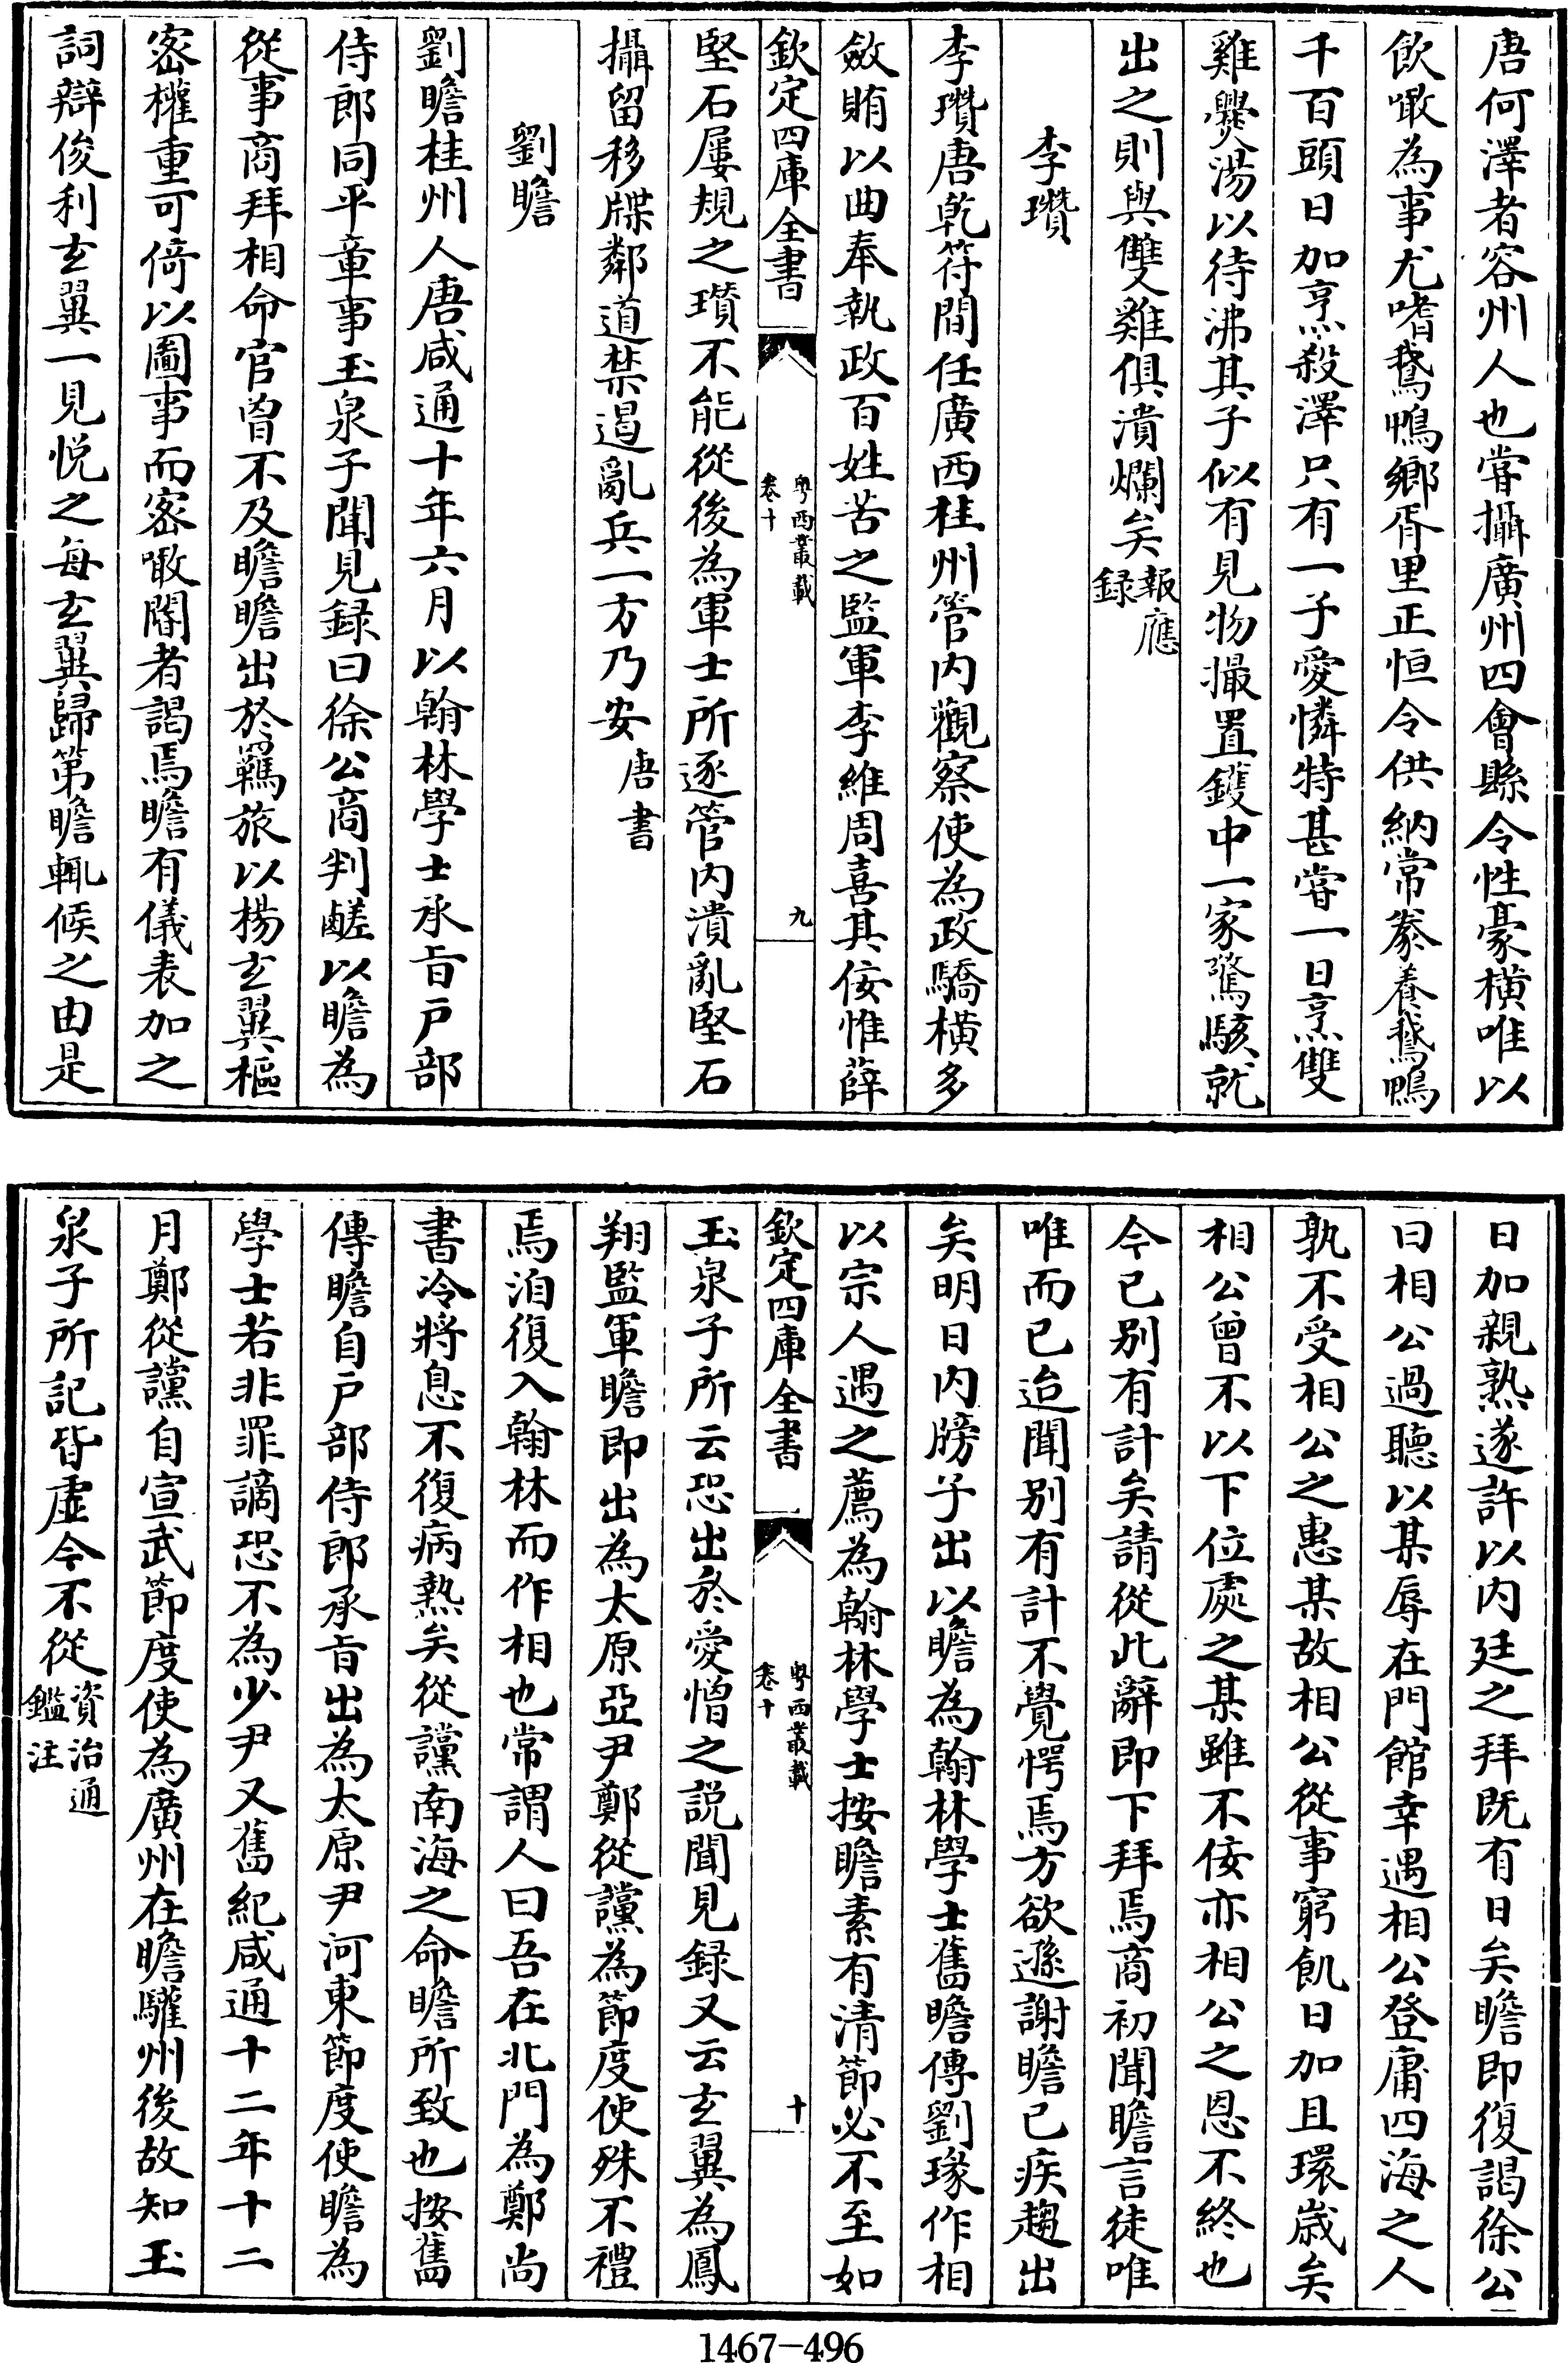 唐何澤者容州人也甞攝廣州四會縣令性豪横唯以
飲噉為事尤嗜鵞鴨鄉胥里正恒令供納常豢養鵞鴨
千百頭日加烹殺澤只有一子愛憐特甚甞一日烹雙
雞爨湯以待沸其子似有見物撮置鑊中一家驚駭就
出之則與雙雞俱潰爛矣報應録
李瓚
李瓚唐乾符間任廣西桂州管内觀察使為政驕横多
斂賄以曲奉執政百姓苦之監軍李維周喜其佞惟薛
欽定四庫全書 粤西叢載 卷十 九
堅石屢規之瓚不能從後為軍士所逐管内潰亂堅石
攝留移牒鄰道禁遏亂兵一方乃安唐書
劉瞻
劉瞻桂州人唐咸通十年六月以翰林學士承旨户部
侍郎同平章事玉泉子聞見録曰徐公商判鹺以瞻為
從事商拜相命官曽不及瞻瞻出於羈旅以楊玄翼樞
密權重可倚以圖事而密噉閽者謁焉瞻有儀表加之
詞辯俊利玄翼一見悦之每玄翼歸第瞻輒候之由是
日加親熟遂許以内廷之拜既有日矣瞻即復謁徐公
曰相公過聽以某辱在門館幸遇相公登庸四海之人
孰不受相公之惠某故相公從事窮飢日加且環歳矣
相公曾不以下位處之某雖不佞亦相公之恩不終也
今已别有計矣請從此辭即下拜焉商初聞瞻言徒唯
唯而已迨聞别有計不覺愕焉方欲遜謝瞻已疾趨出
矣明日内牓子出以瞻為翰林學士舊瞻傳劉瑑作相
以宗人遇之薦為翰林學士按瞻素有清節必不至如
欽定四庫全書 粤西叢載 卷十 十
玉泉子所云恐出於愛憎之説聞見録又云玄翼為鳳
翔監軍瞻即出為太原亞尹鄭從讜為節度使殊不禮
焉洎復入翰林而作相也常謂人曰吾在北門為鄭尚
書冷將息不復病熱矣從讜南海之命瞻所致也按舊
傳瞻自户部侍郎承旨出為太原尹河東節度使瞻為
學士若非罪謫恐不為少尹又舊紀咸通十二年十二
月鄭從讜自宣武節度使為廣州在瞻驩州後故知玉
泉子所記皆虚今不從資治通鑑注
1467-496